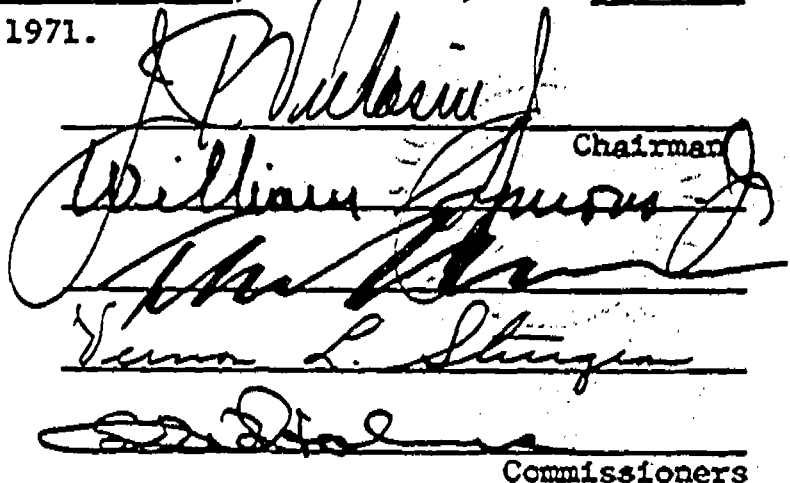 1971.
J. P. Vukasin Jr
Chairman
William Symons Jr.
Vernon L. Sturgeon
Commissioners